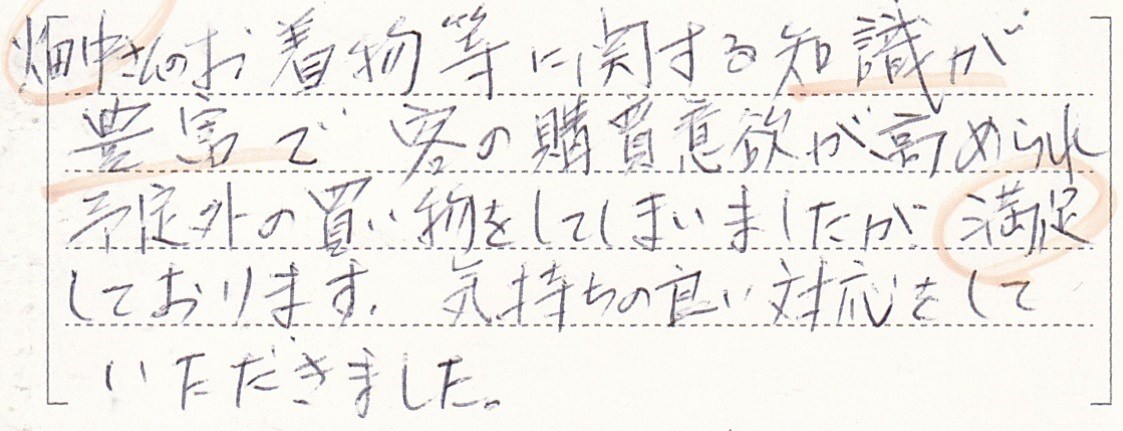 畑中さんのお着物等に関する知識が
豊富で客の購買意欲が高められ
予定外の買い物をしてしまいましたが、満足
しております。気持ちの良い対応をして
いただきました。